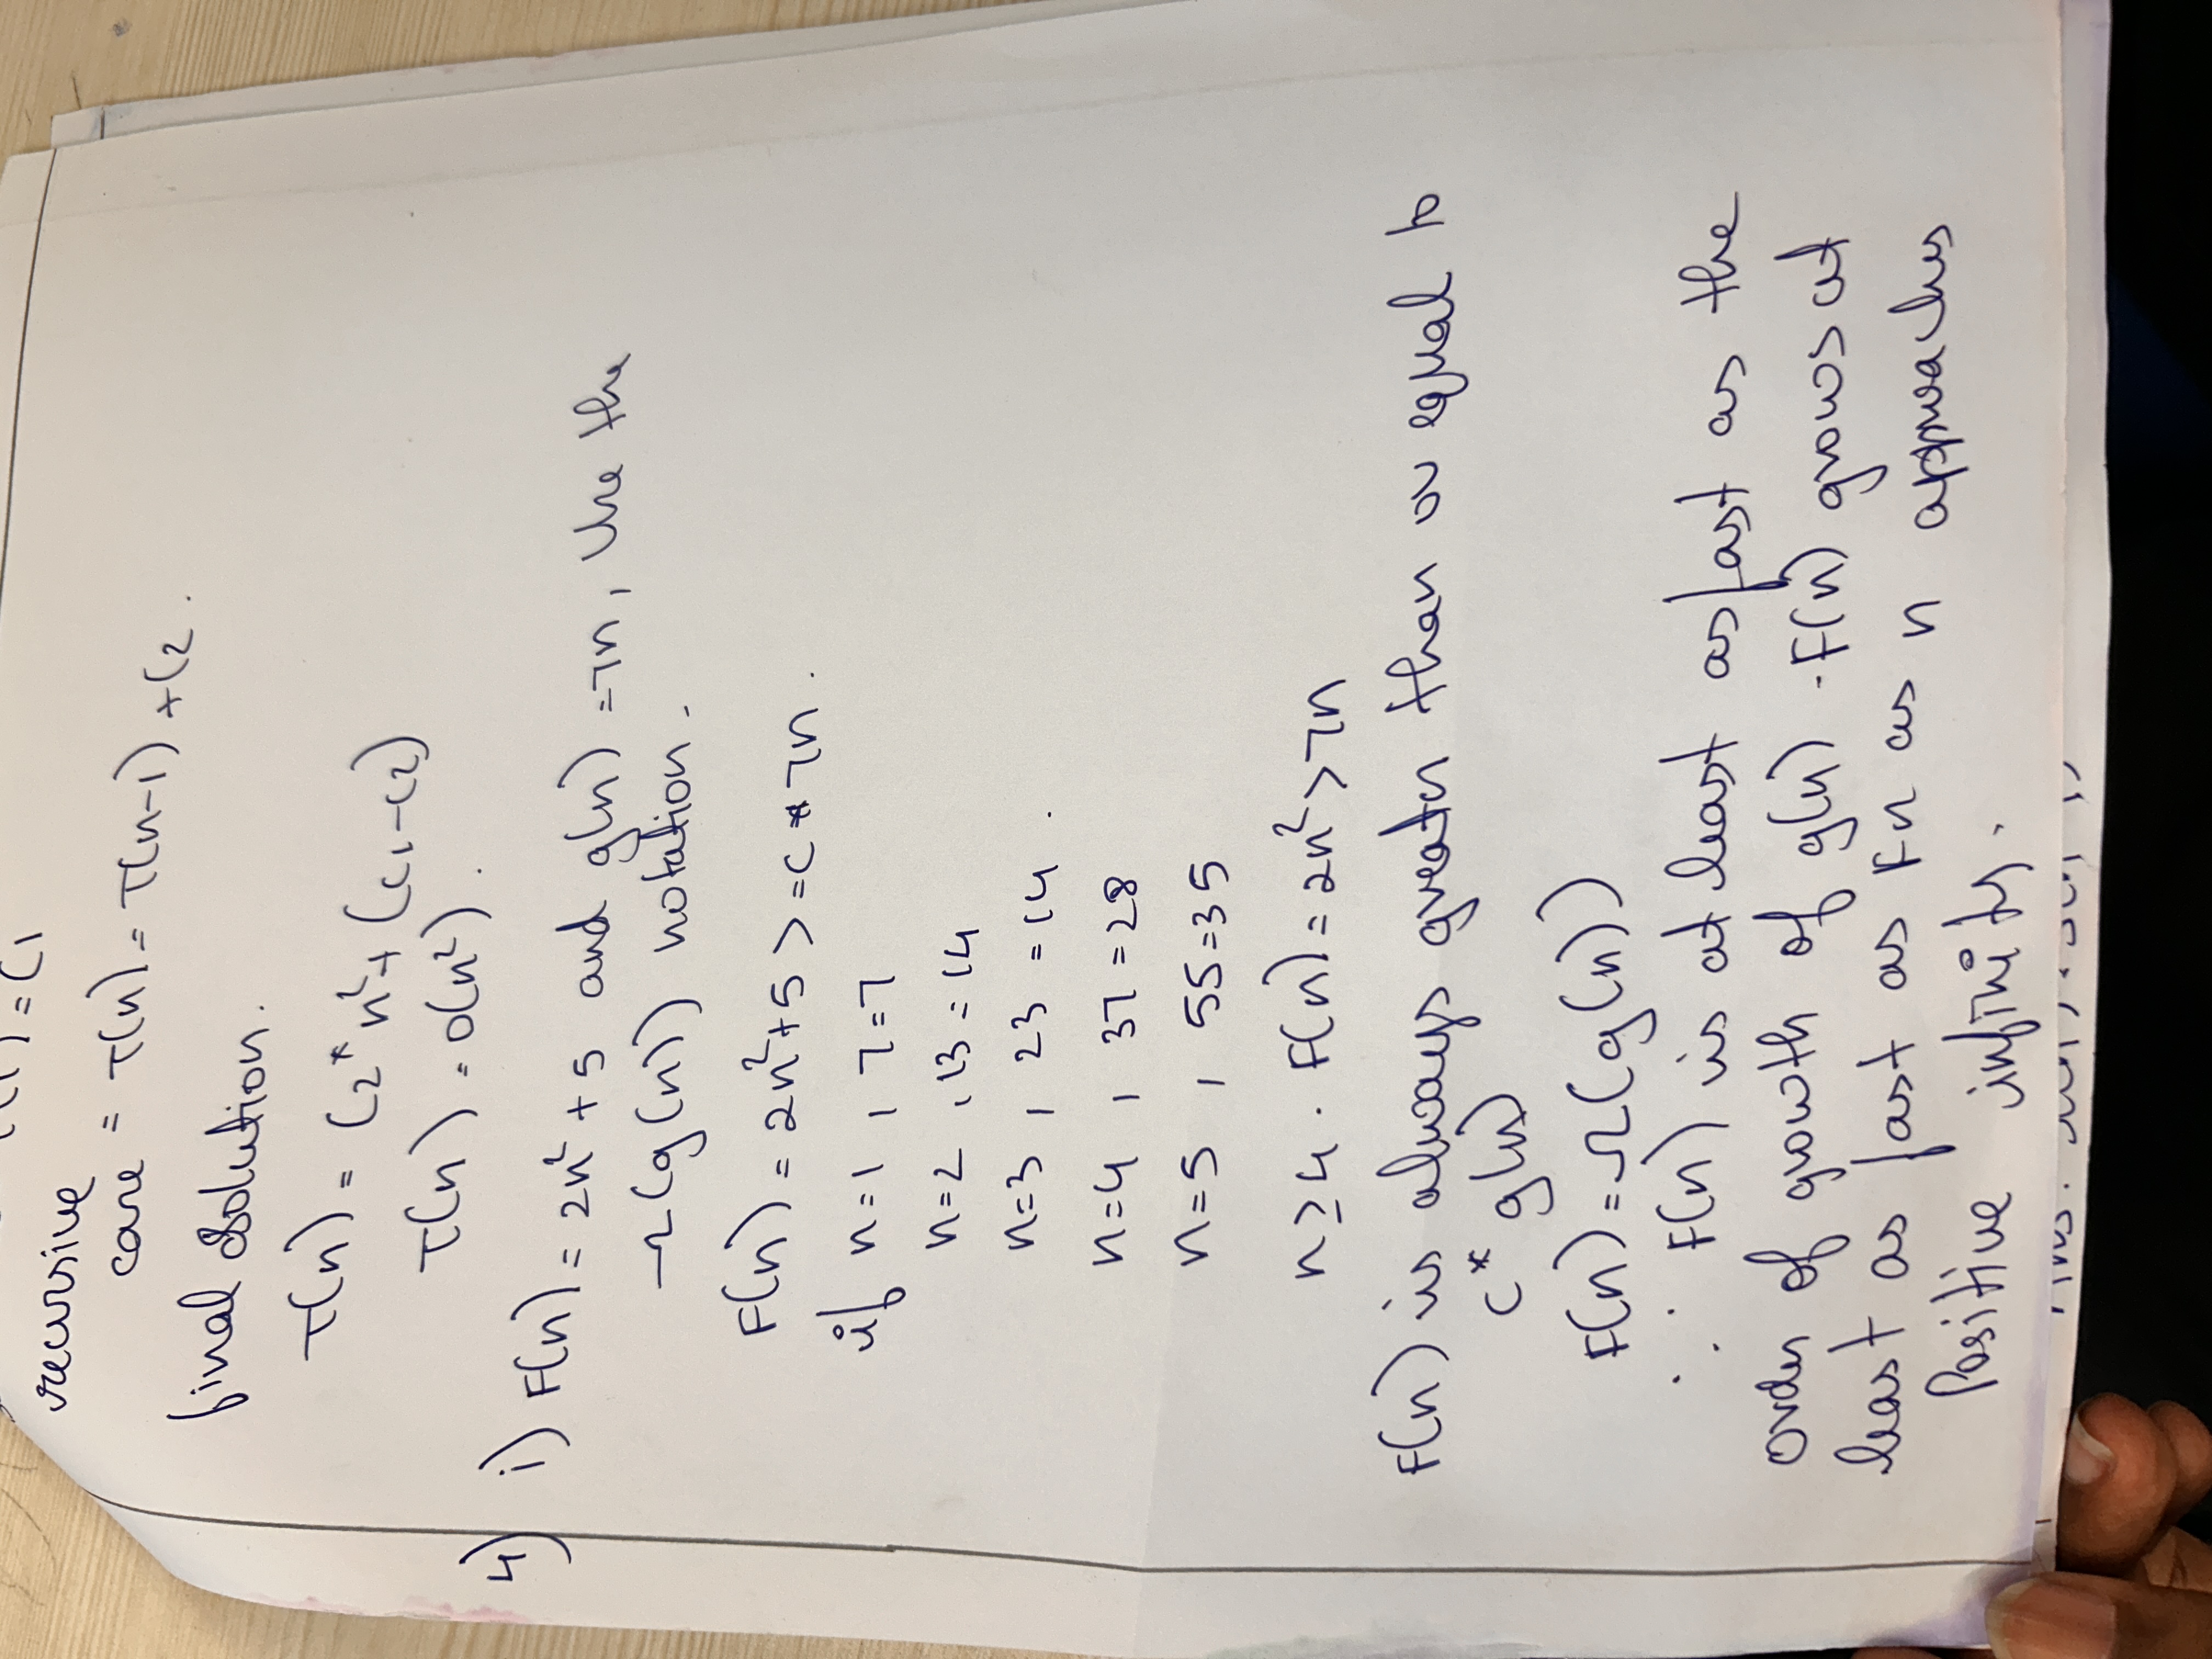 = C1
recursive
case = T(n) = T(n-1) + C2 .
final solution.
T(n) = C2 * n² + (C1-C2)
T(n) = O(n²) .
4) i) F(n) = 2n² + 5 and g(n) = 7n, Use the
Ω(g(n)) notation .
F(n) = 2n² + 5 > = C * 7n .
if n=1 , 7=7
n=2 , 13 = 14
n=3 , 23 = 14 .
n=4 , 37 = 28
n=5 , 55=35
n ≥ 4 . F(n) = 2n² > 7n
F(n) is always greater than or equal to
C * g(n)
F(n) = Ω(g(n))
∵ F(n) is at least as fast as the
order of growth of g(n) . F(n) grows at
least as fast as Fn as n approaches
Positive infinity .